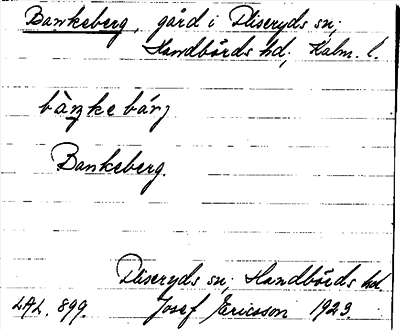 Bankeberg, gård i Fliseryds sn;
Handbörds hd, Kalm. l.
bàŋkebárj
Bankeberg.
Fliseryds sn; Handbörds hd.
LAL. 899. Josef Ericsson 1923.